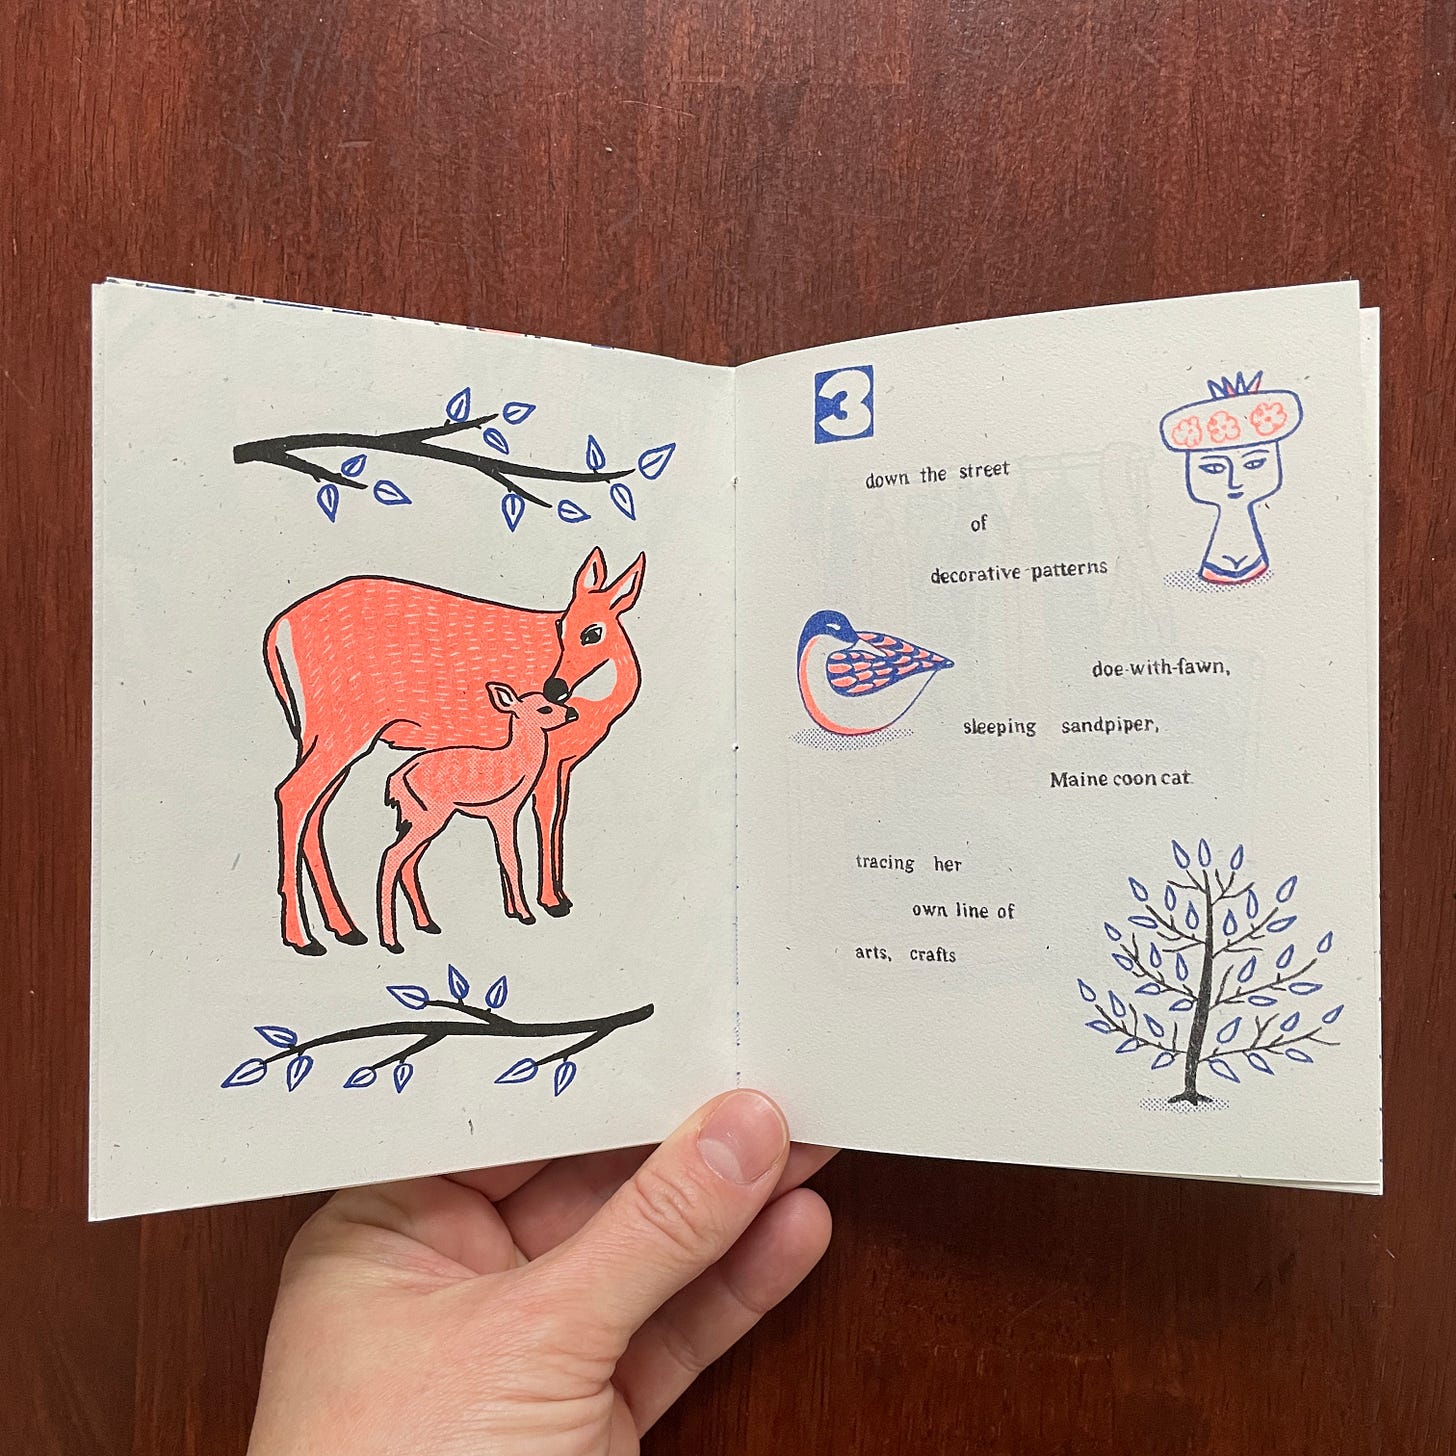 3
down the street
of
decorative patterns
doe-with-fawn,
sleeping sandpiper,
Maine coon cat
tracing her
own line of
arts, crafts